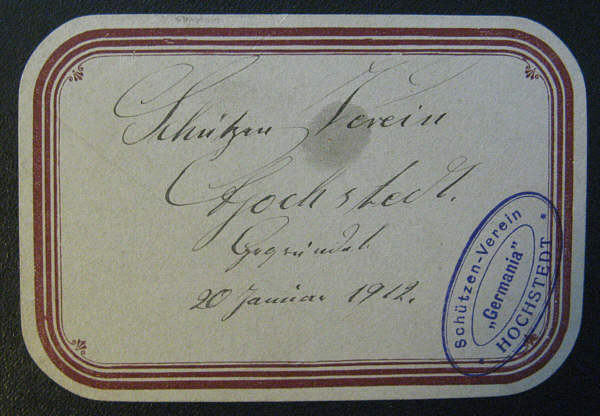 Schützen Verein
Hochstedt.
Gegründet
20 Januar 1912.
Schützen-Verein
„Germania"
* HOCHSTEDT *